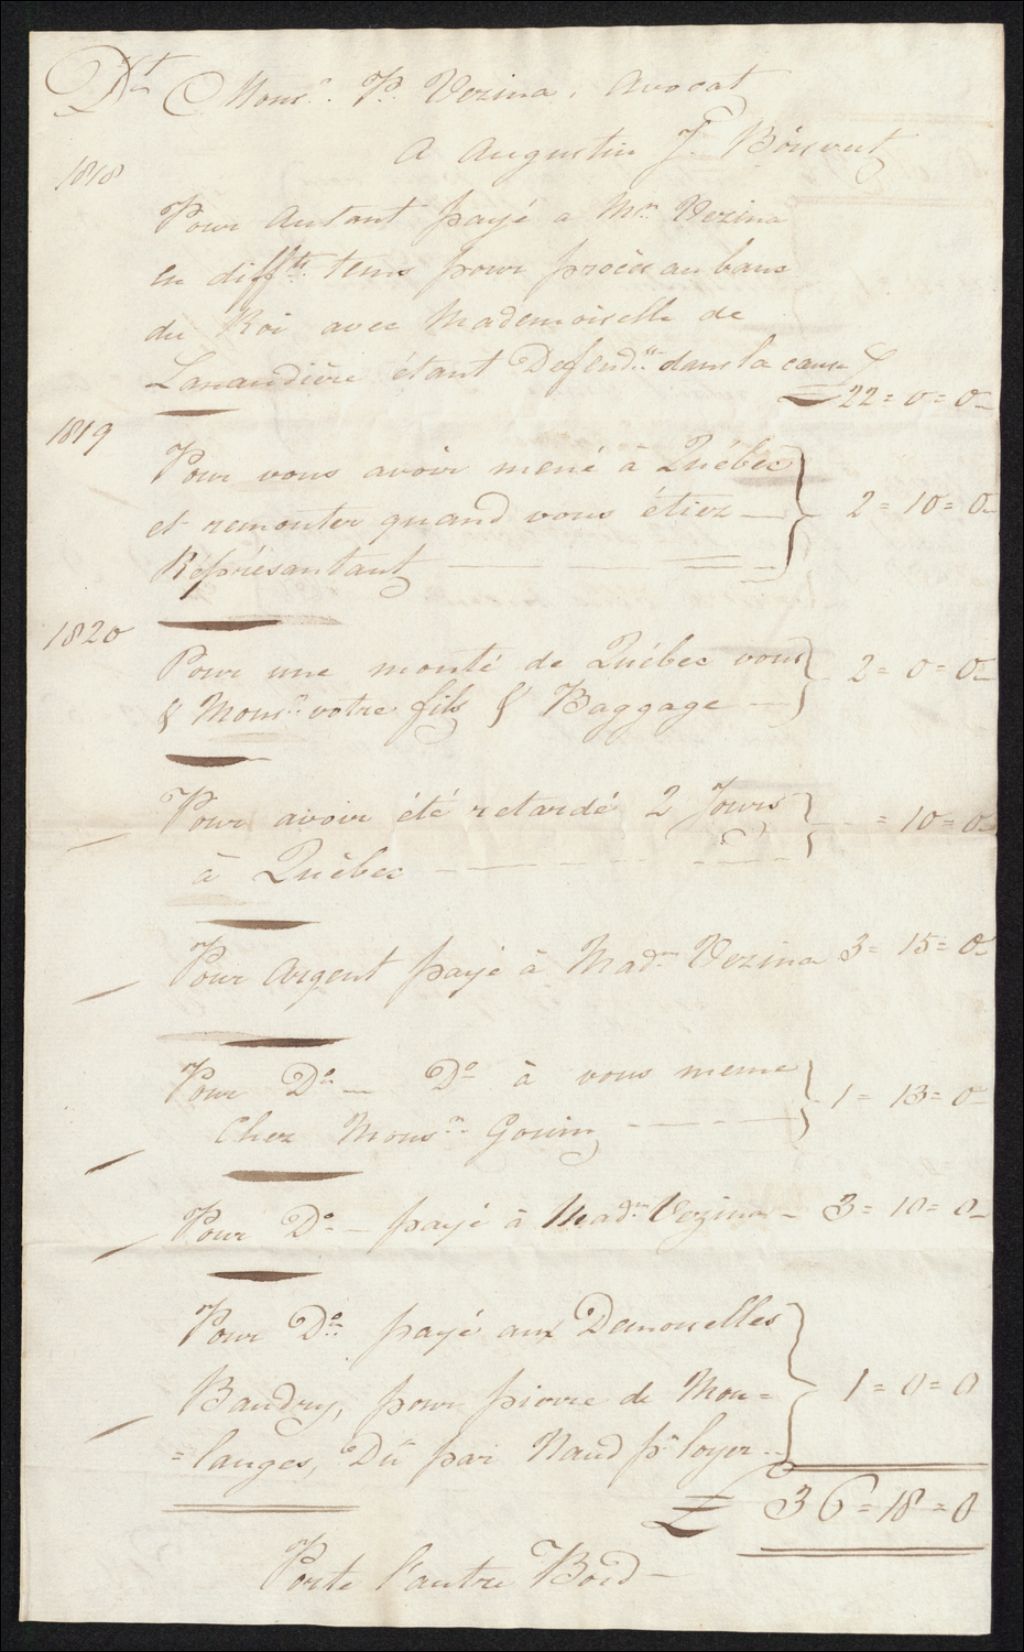 Dt Monsr. P. Vezina, Avocat
A Augustin J. Boisvert
1818
Pour Autant payé a Mr. Vezina
en difft. tems pour procès au banc
du Roi avec Mademoiselle de
Lanaudière étant Defendr. dans la cause
22=0=0
1819
Pour vous avoir mené à Québec
et remonter quand vous étiez } 2=10=0
Réprésantant
1820
Pour une monté de Québec vous } 2=0=0
& Monsr. votre fils & Baggage
Pour avoir été retardé 2 Jours } =10=0
à Québec
Pour Argent payé à Madm Vezina 3=15=0
Pour Do Do à vous meme } 1=13=0
Chez Monsr. Gouin
Pour Do payé à Madm Vezina 3=10=0
Pour Do payé aux Demouelles
Baudry, pour pierre de Mou= } 1=0=0
=langes, Dû par Naud pr loyer
£ 36=18=0
Porte l'autre Bord